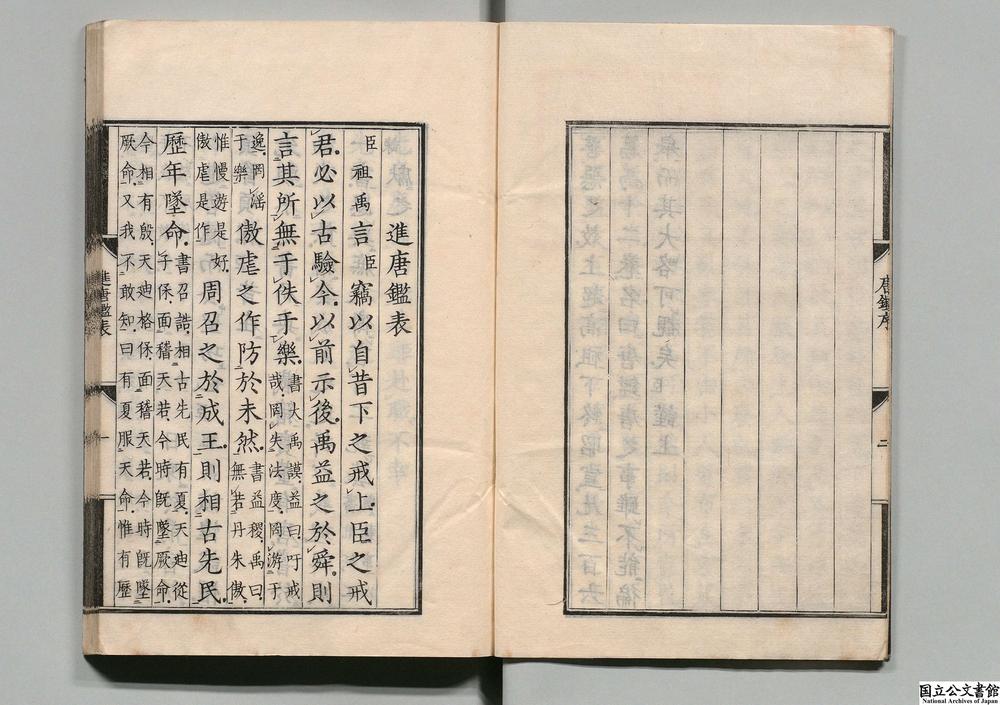 唐鑑序
二
進唐鑑表
臣祖禹言臣竊以自昔下之戒上臣之戒
君必以古驗今以前示後禹益之於舜則
言其所無于佚于樂書大禹謨益曰吁戒哉罔失法度罔游于
逸罔淫于樂傲虐之作防於未然書益稷禹曰無若丹朱傲
惟慢遊是好傲虐是作周召之於成王則相古先民
歷年墜命書召誥相古先民有夏天迪從子保面稽天若今時既墜厥命
今相有殷天迪格保面稽天若今時既墜厥命又我不敢知曰有夏服天命惟有歷
進唐鑑表
一
国立公文書館
National Archives of Japan